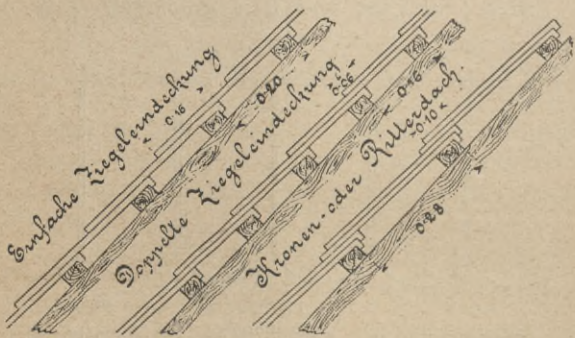 Einfache Ziegeleindeckung
0·16
0·20
Doppelte Ziegeleindeckung
0·06
0·16
Kronen- oder Ritterdach.
0·10
0·28